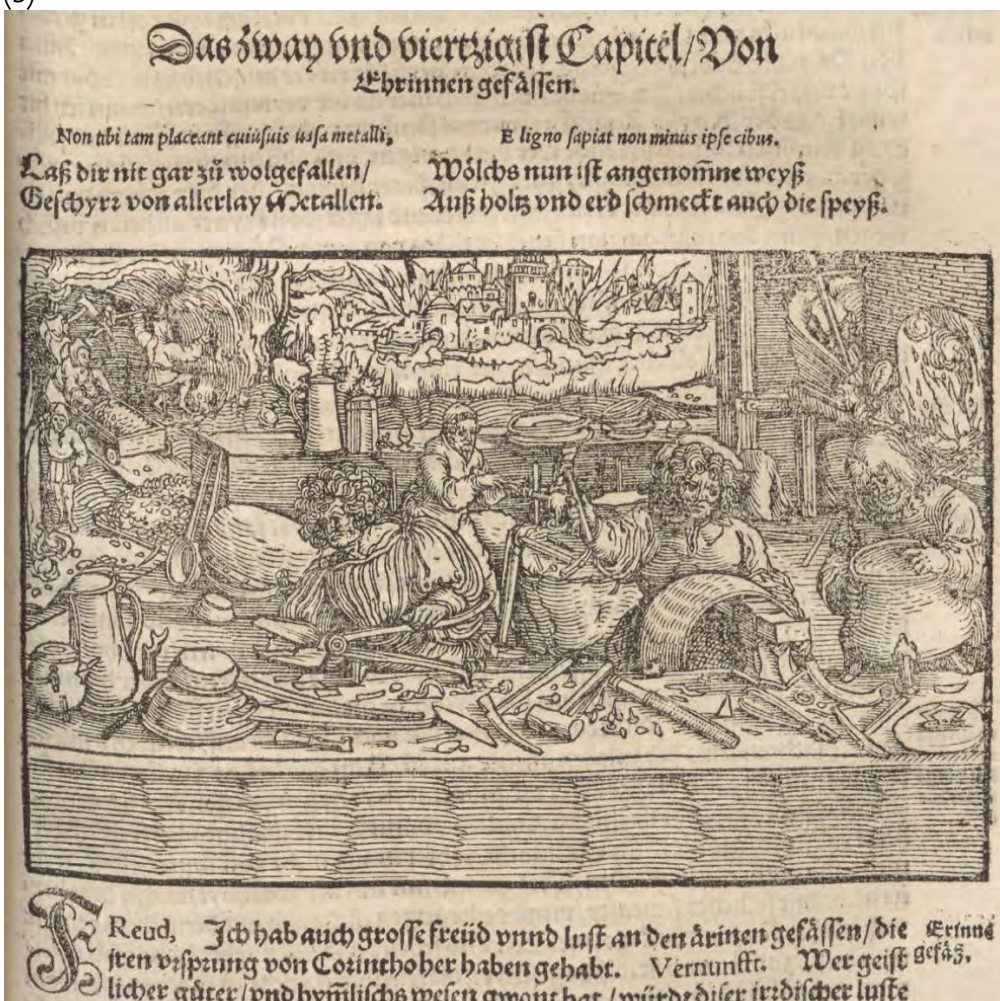 (3)
Das zway vnd viertzigist Capitel/Von
Ehrinnen gefässen.
Non tibi tam placeant cuiúsuis uasa metalli,
E ligno sapiat non minus ipse cibus.
Laß dir nit gar zů wolgefallen/
Geschyrr von allerlay Metallen.
Wölchs nun ist angenom̃ne weyß
Auß holtz vnd erd schmeckt auch die speyß.
FReud, Ich hab auch grosse freüd vnnd lust an den ärinen gefässen/die
jren vrsprung von Corintho her haben gehabt. Vernunfft. Wer geist
licher güter/vnd hym̃lischs wesen gwont hat/würdt diser irrdischer luste
Erinne
gefäß.